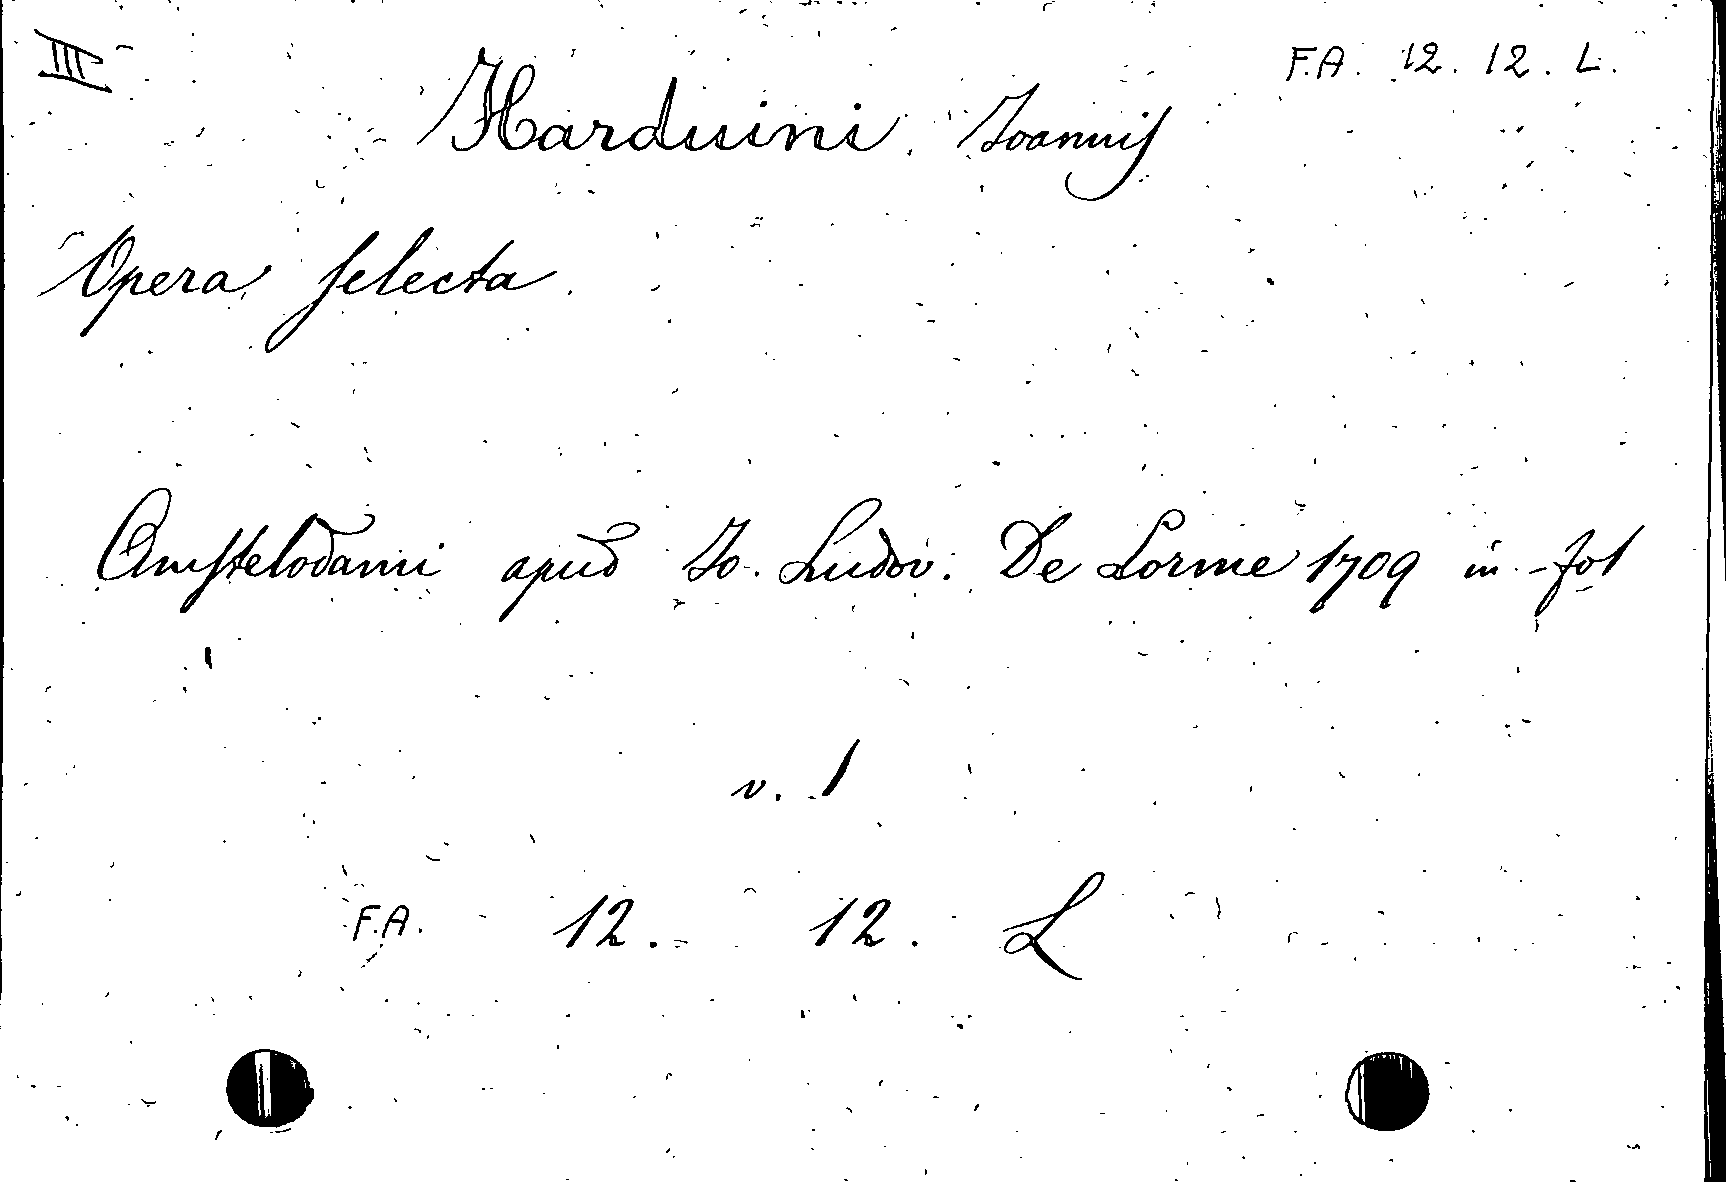 III
F.A. 12. 12. L.
Harduini Joannis
Opera selecta
Amstelodami apud Jo. Ludov. De Lorme 1709 in-fol
v. 1
F.A. 12. 12. L